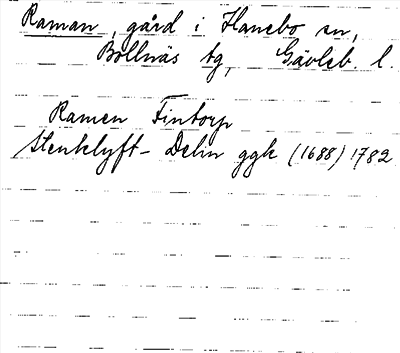 Raman, gård i Hanebo sn,
Bollnäs tg, Gävleb. l.
Ramen Fintorp
Stenklyft - Delin ggk (1688) 1782